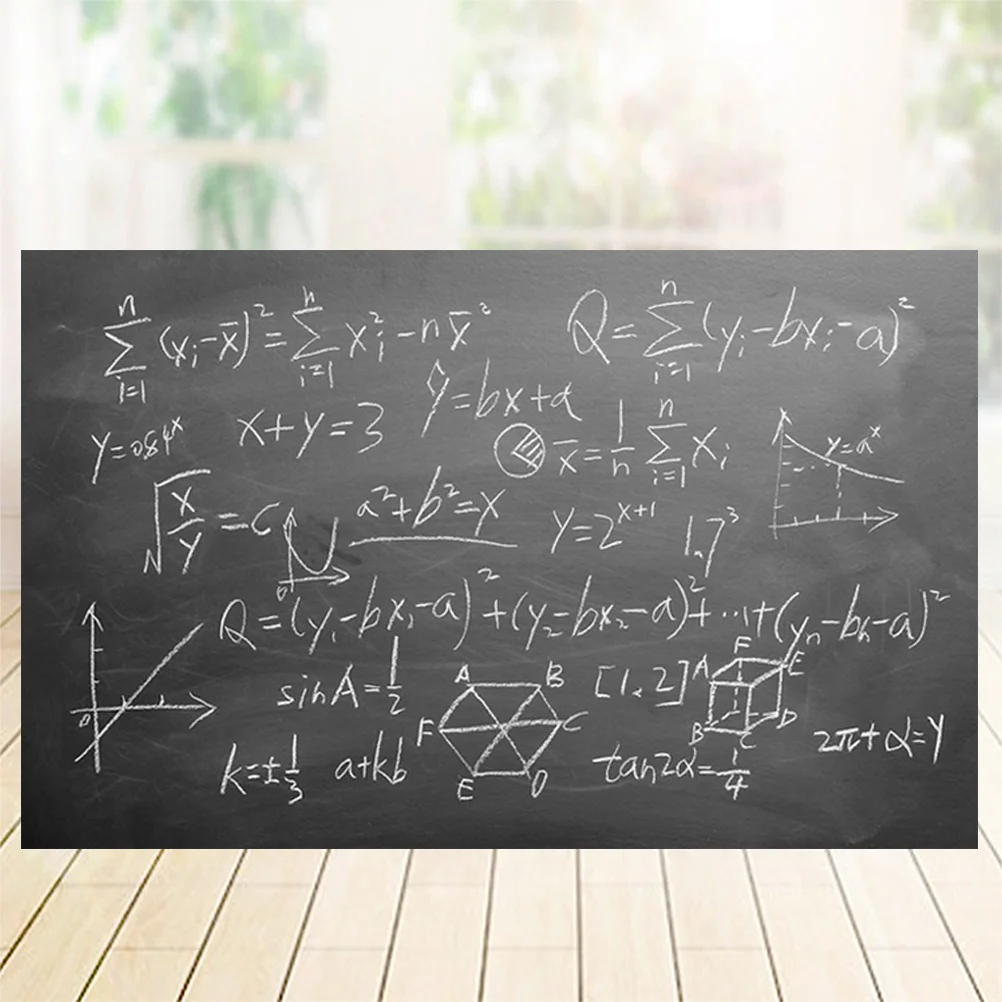 ∑ᵢ₌₁ⁿ (xᵢ-x̄)² = ∑ᵢ₌₁ⁿ xᵢ² - nx̄²
Q = ∑ᵢ₌₁ⁿ (yᵢ-bxᵢ-a)²
y=0.84ˣ
x+y=3
ŷ=bx+a
x̄ = 1/n ∑ᵢ₌₁ⁿ xᵢ
y=aˣ
√(x/y) = c
a²+b²=x
y=2ˣ⁺¹
1.7³
0
Q=(y₁-bx₁-a)²+(y₂-bx₂-a)²+...+(yₙ-bxₙ-a)²
0
sinA=1/2
A B
F C
E D
[1,2]
F
A E
B D
C
2π+α=y
k=±1/3
a+kb
tan2α=1/4